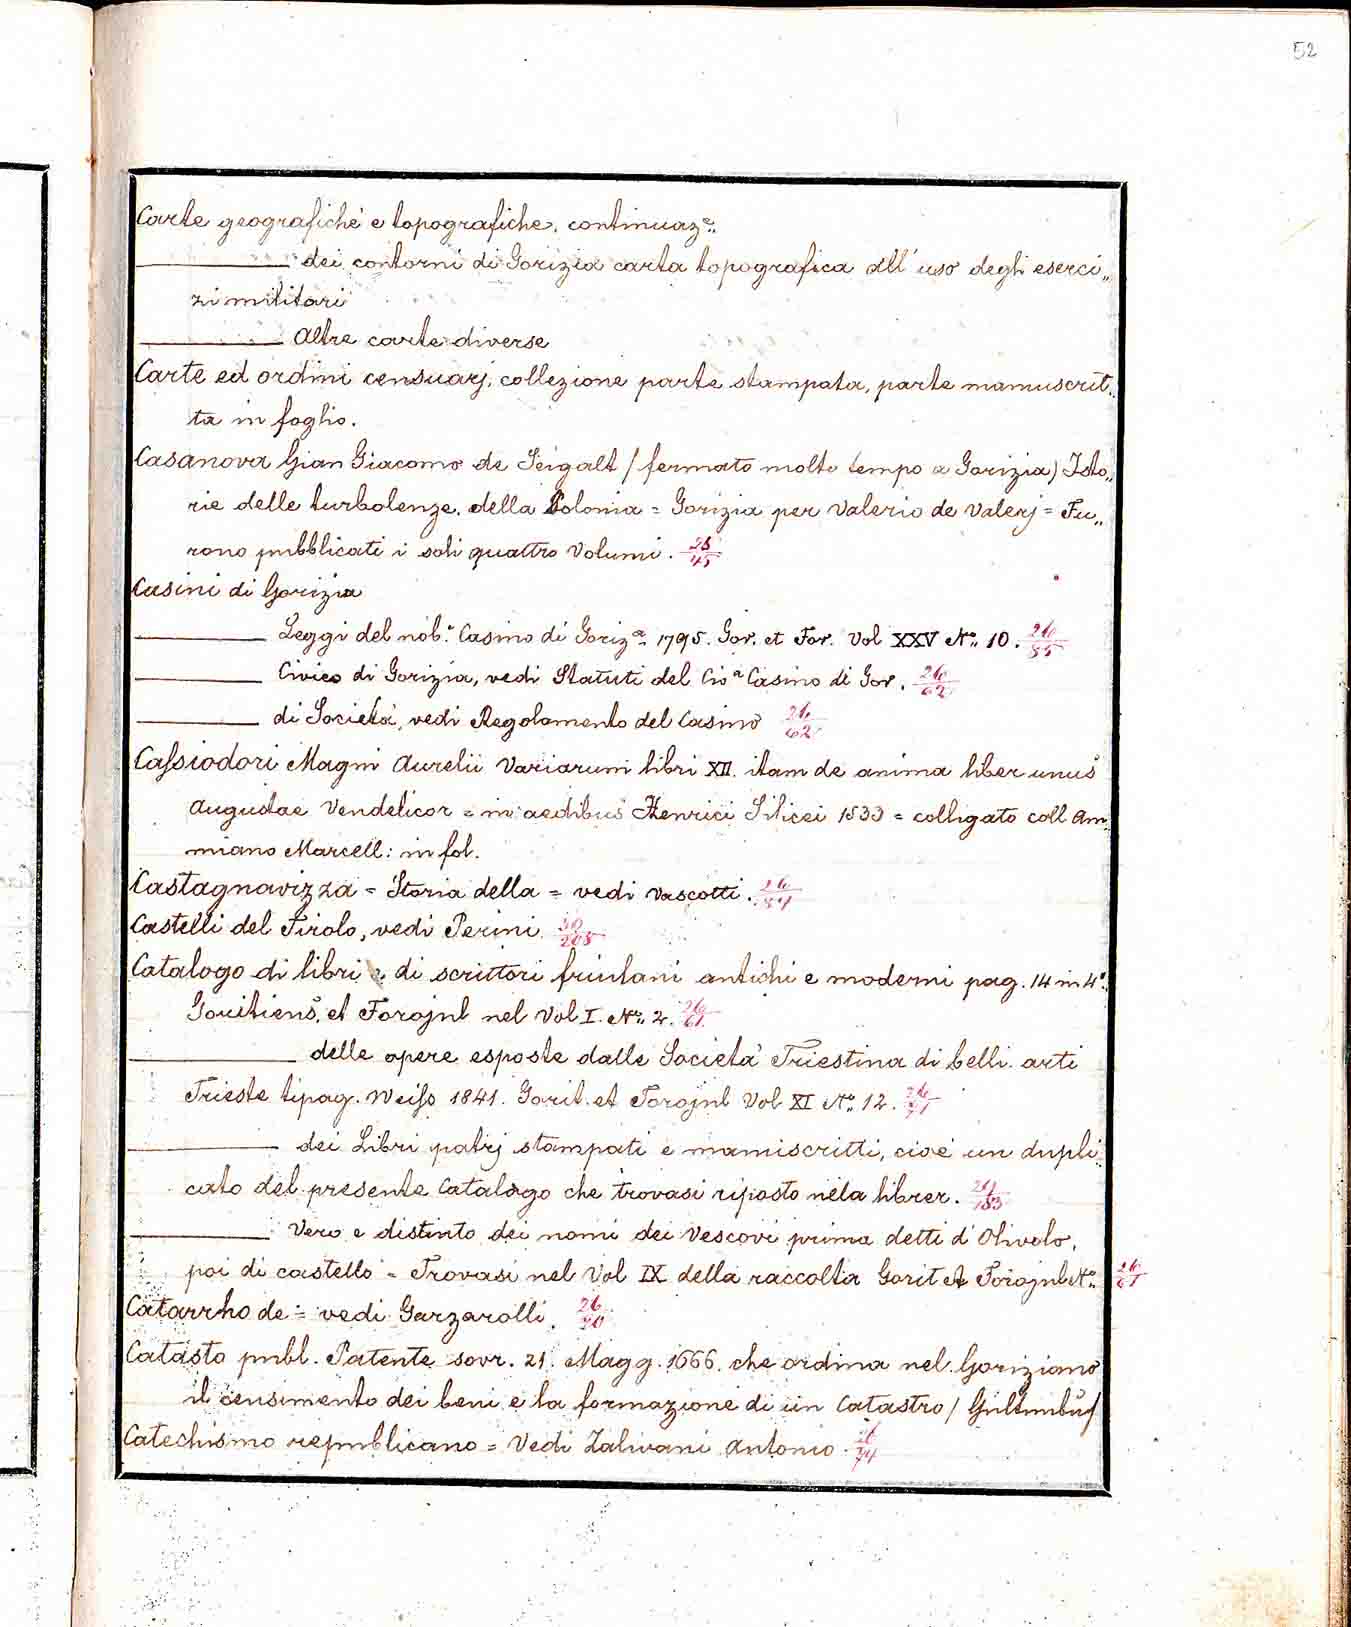 52
Carte geografiche e topografiche, continuazᵉ:
________ dei contorni di Gorizia carta topografica all'uso degli eserci„
zi militari
________ Altre carte diverse
Carte ed ordini censuarj, collezione parte stampata, parte manuscrit„
ta in foglio.
Casanova Gian Giacomo de Seigalt / fermato molto tempo a Gorizia) Isto„
rie delle turbolenze della Polonia = Gorizia per Valerio de Valerj = Fu„
rono pubblicati i soli quattro Volumi. 28/45
Casini di Gorizia
________ Leggi del nobᵉ Casino di Gorizᵃ: 1795. Gor. et For. Vol XXV Nº: 10. 26/85
________ Civico di Gorizia, vedi Statuti del Civᵒ Casino di Gor. 26/62
________ di Società, vedi Regolamento del Casino 26/62
Cassiodori Magni Aurelii Variarum libri XII. itam de anima liber unus
Augustae Vendelicor = in aedibus Henrici Silicei 1533 = colligato coll Am„
miano Marcell: in fol.
Castagnavizza = Storia della = vedi Vascotti. 26/84
Castelli del Tirolo, vedi Perini 30/205
Catalogo di libri e di scrittori friulani antichi e moderni pag. 14 in 4º.
Goritiens. et Forojul nel Vol I. Nº: 2. 26/61
________ delle opere esposte dalla Società Triestina di belli arti
Trieste tipag. Weiss 1841. Gorit. et Forojul Vol XI Nº: 12. 26/71
________ dei Libri patrj stampati e mamiscritti, cioè un dupli„
cato del presente Catalogo che trovasi riposto nela librer. 29/183
________ Vero e distinto dei nomi dei Vescovi prima detti d'Olivolo,
poi di castello = Trovasi nel Vol IX della raccolta Gorit et Forojul Nº: 26/67
Catarrho de = vedi Garzarolli. 26/20
Catasto publ. Patente sovr. 21. Magg. 1666. che ordina nel Goriziano
il censimento dei beni e la formazione di un Catastro /
Catechismo republicano = Vedi Zalivani Antonio. 26/74